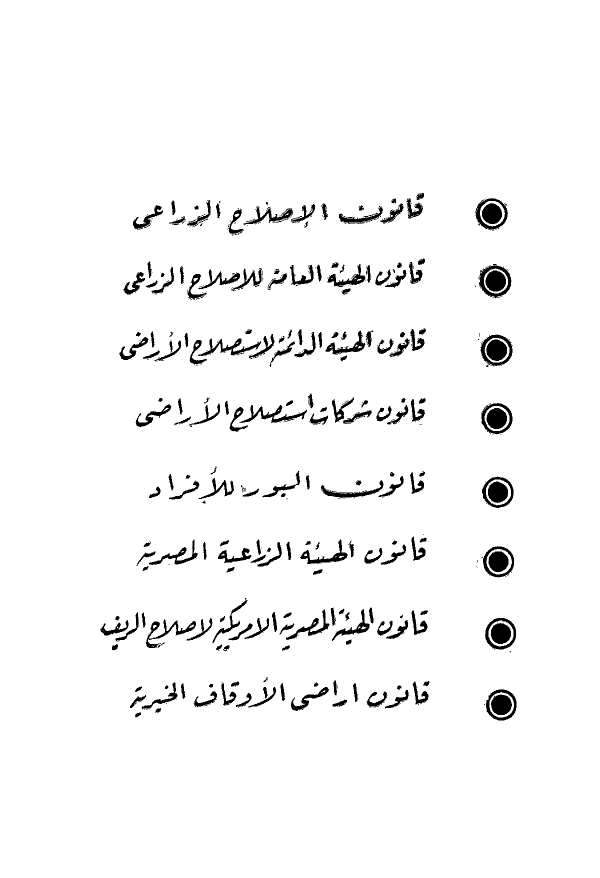 قانون الإصلاح الزراعى
قانون الهيئة العامة للاصلاح الزراعى
قانون الهيئة الدائمة لاستصلاح الأراضى
قانون شركات استصلاح الأراضى
قانون البور للأفراد
قانون الهيئة الزراعية المصرية
قانون الهيئة المصرية الامريكية لاصلاح الريف
قانون اراضى الأوقاف الخيرية